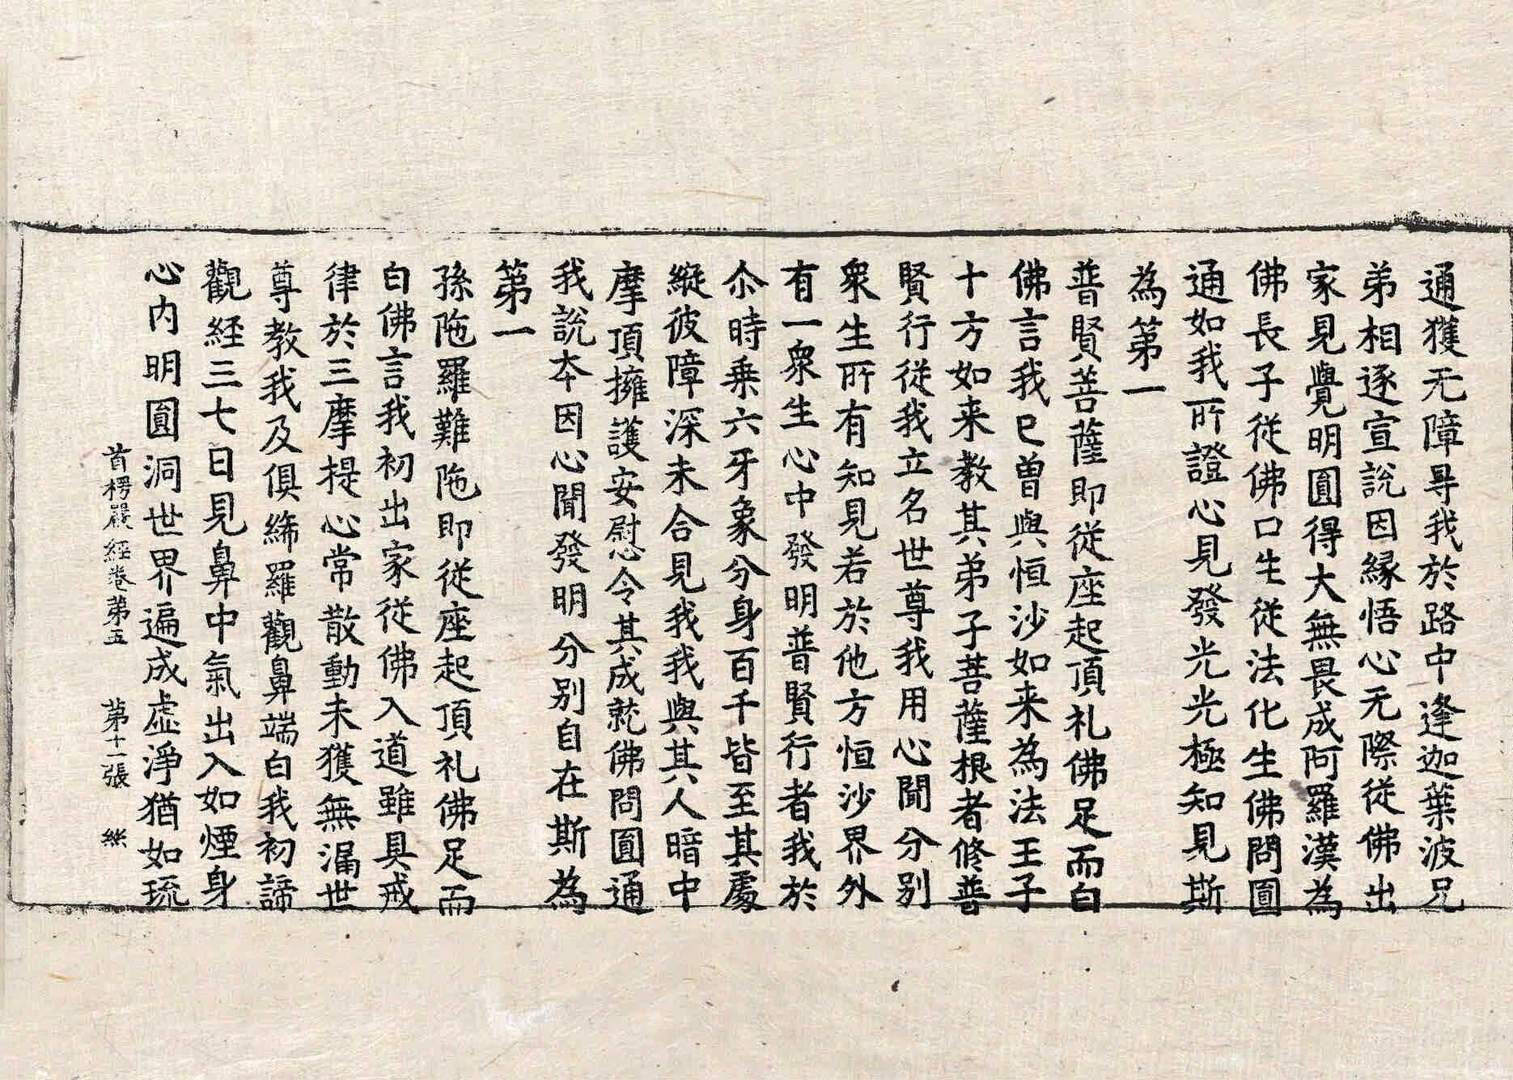 通獲无障㝵我於路中逢迦葉波兄
弟相逐宣說因緣悟心无際從佛出
家見覺明圓得大無畏成阿羅漢為
佛長子從佛口生從法化生佛問圓
通如我所證心見發光光極知見斯
為第一
普賢菩薩即從座起頂礼佛足而白
佛言我已曾與恒沙如来為法王子
十方如来教其弟子菩薩根者修普
賢行從我立名世尊我用心聞分別
衆生所有知見若於他方恒沙界外
有一衆生心中發明普賢行者我於
尒時乗六牙象分身百千皆至其處
縱彼障深未合見我我與其人暗中
摩頂擁護安慰令其成就佛問圓通
我說本因心聞發明分別自在斯為
第一
孫陁羅難陁即從座起頂礼佛足而
白佛言我初出家從佛入道雖具戒
律於三摩提心常散動未獲無漏世
尊教我及俱絺羅觀鼻端白我初諦
觀経三七日見鼻中氣出入如煙身
心内明圓洞世界遍成虛淨猶如琉
首楞嚴經卷第五 第十一張 絲